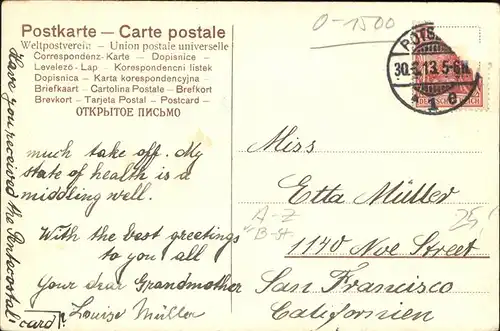 Postkarte — Carte postale
Weltpostverein - Union postale universelle
Correspondenz-Karte — Dopisnice
Levelező-Lap — Korespondencni listek
Dopisnica — Karta korespondencyjna
Briefkaart — Cartolina Postale — Brefkort
Brevkort — Tarjeta Postal — Postcard —
ОТКРЫТОЕ ПИСЬМО
0-1500
POTS
30. .13. 5-6N
* 1 e
DEUTSCHES REICH
much take off. My
state of health is a
middling well.
With the best greetings
to you all
Your dear Grandmother
Louise Müller
Have you received the Pentecostal
card?
Miss
Etta Müller
A-Z
B-st
25
1140 Noe Street
San Francisco
Californien